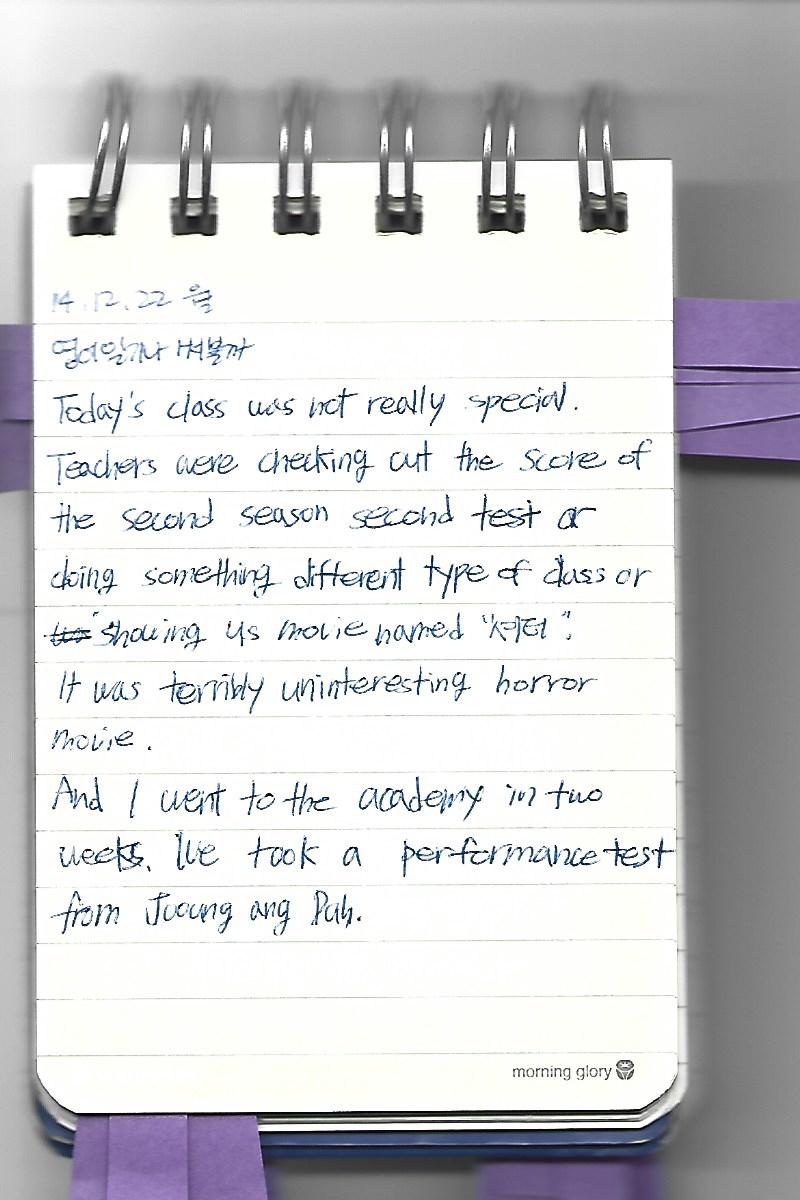 14.12.22 월
영어일기나 써볼까
Today's class was not really special.
Teachers were checking out the score of
the second season second test or
doing something different type of class or
showing us movie named "셔터".
It was terribly uninteresting horror
movie.
And I went to the academy in two
weeks. I've took a performance test
from
morning glory